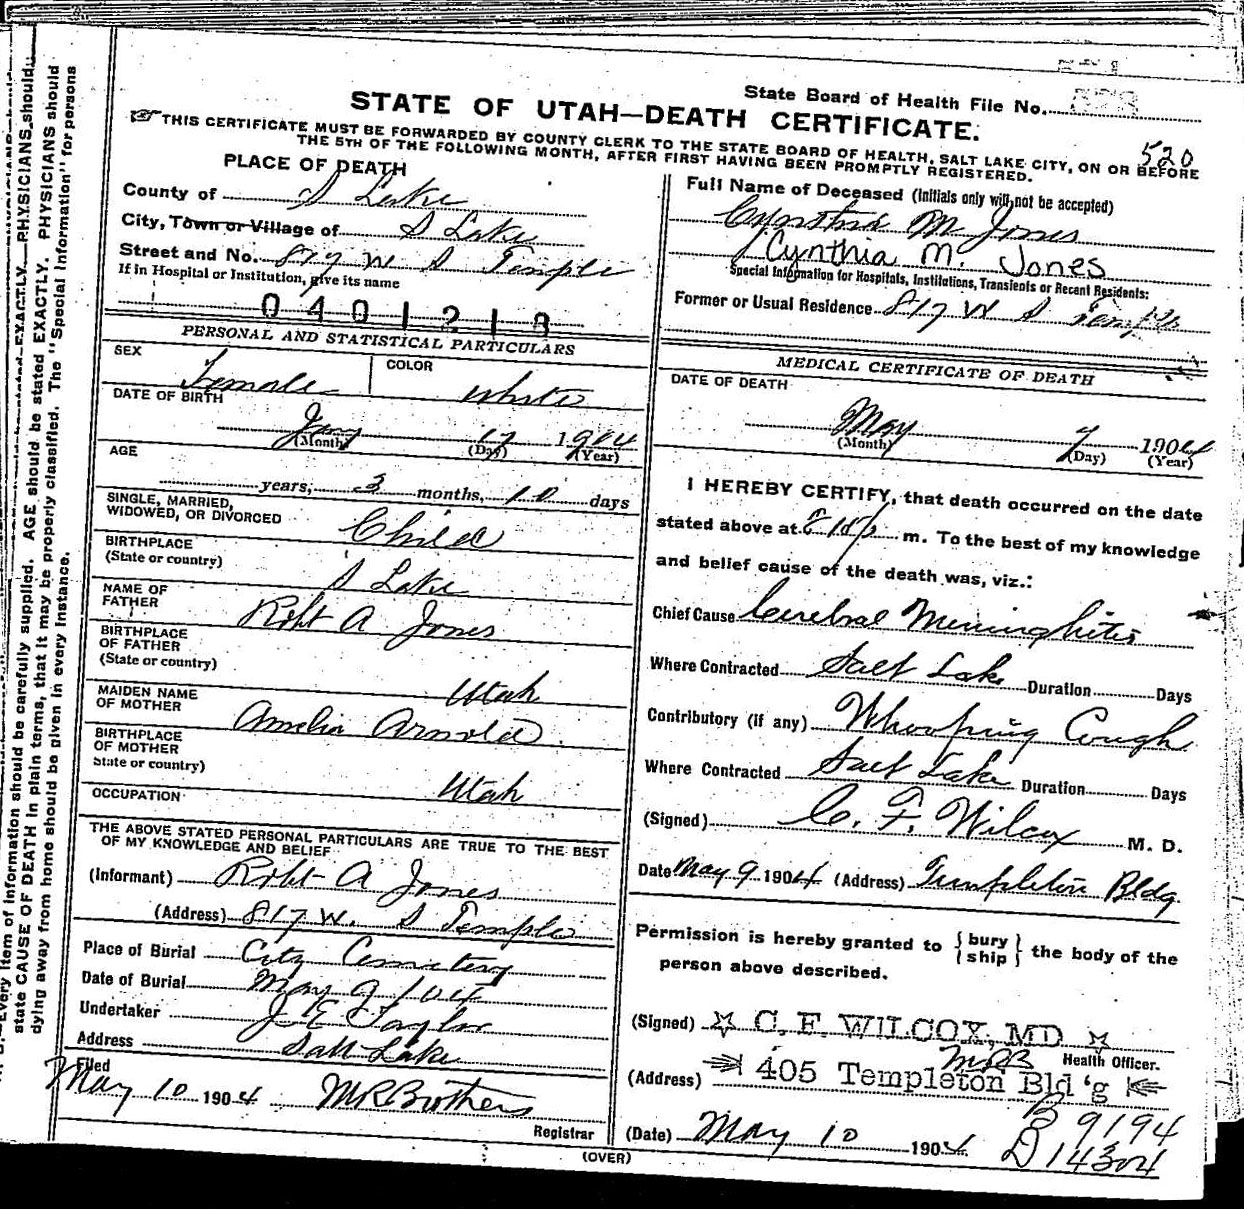 State Board of Health File No.
STATE OF UTAH—DEATH CERTIFICATE.
THIS CERTIFICATE MUST BE FORWARDED BY COUNTY CLERK TO THE STATE BOARD OF HEALTH, SALT LAKE CITY, ON OR BEFORE
THE 5TH OF THE FOLLOWING MONTH, AFTER FIRST HAVING BEEN PROMPTLY REGISTERED.
520
PLACE OF DEATH
County of S Lake
City, Town or Village of S Lake
Street and No. 817 W S Temple
If in Hospital or Institution, give its name
0401218
PERSONAL AND STATISTICAL PARTICULARS
SEX Female
COLOR White
DATE OF BIRTH
Jany 17 1904
(Month) (Day) (Year)
AGE
years, 3 months, 10 days
SINGLE, MARRIED,
WIDOWED, OR DIVORCED Child
BIRTHPLACE
(State or country) S Lake
NAME OF
FATHER Robt A Jones
BIRTHPLACE
OF FATHER
(State or country) Utah
MAIDEN NAME
OF MOTHER Amelia Arnold
BIRTHPLACE
OF MOTHER
State or country) Utah
OCCUPATION
THE ABOVE STATED PERSONAL PARTICULARS ARE TRUE TO THE BEST
OF MY KNOWLEDGE AND BELIEF
(Informant) Robt A Jones
(Address) 817 W. S Temple
Place of Burial City Cemetery
Date of Burial May 9 104
Undertaker J E Taylor
Address Salt Lake
Filed
May 10 1904 MRBrothers
Registrar
Full Name of Deceased (Initials only will not be accepted)
Cynthia M Jones
Cynthia M. Jones
Special Information for Hospitals, Institutions, Transients or Recent Residents:
Former or Usual Residence 817 W S Temple
MEDICAL CERTIFICATE OF DEATH
DATE OF DEATH
May 7 1904
(Month) (Day) (Year)
I HEREBY CERTIFY, that death occurred on the date
stated above at m. To the best of my knowledge
and belief cause of the death was, viz.:
Chief Cause Cerebral Meninghitis
Where Contracted Salt Lake Duration Days
Contributory (if any) Whooping Cough
Where Contracted Salt Lake Duration Days
(Signed) C. F. Wilcox M. D.
Date May 9 1904 (Address) Templeton Bldg.
Permission is hereby granted to {bury
ship} the body of the
person above described.
(Signed) ☆ C. F. WILCOX, MD ☆
MRB Health Officer.
(Address) 405 Templeton Bld'g
(Date) May 10 1904
B 9194
D 14304
(OVER)
N. B.—Every item of information should be carefully supplied. AGE should be stated EXACTLY. PHYSICIANS should
state CAUSE OF DEATH in plain terms, that it may be properly classified. The "Special Information" for persons
dying away from home should be given in every instance.